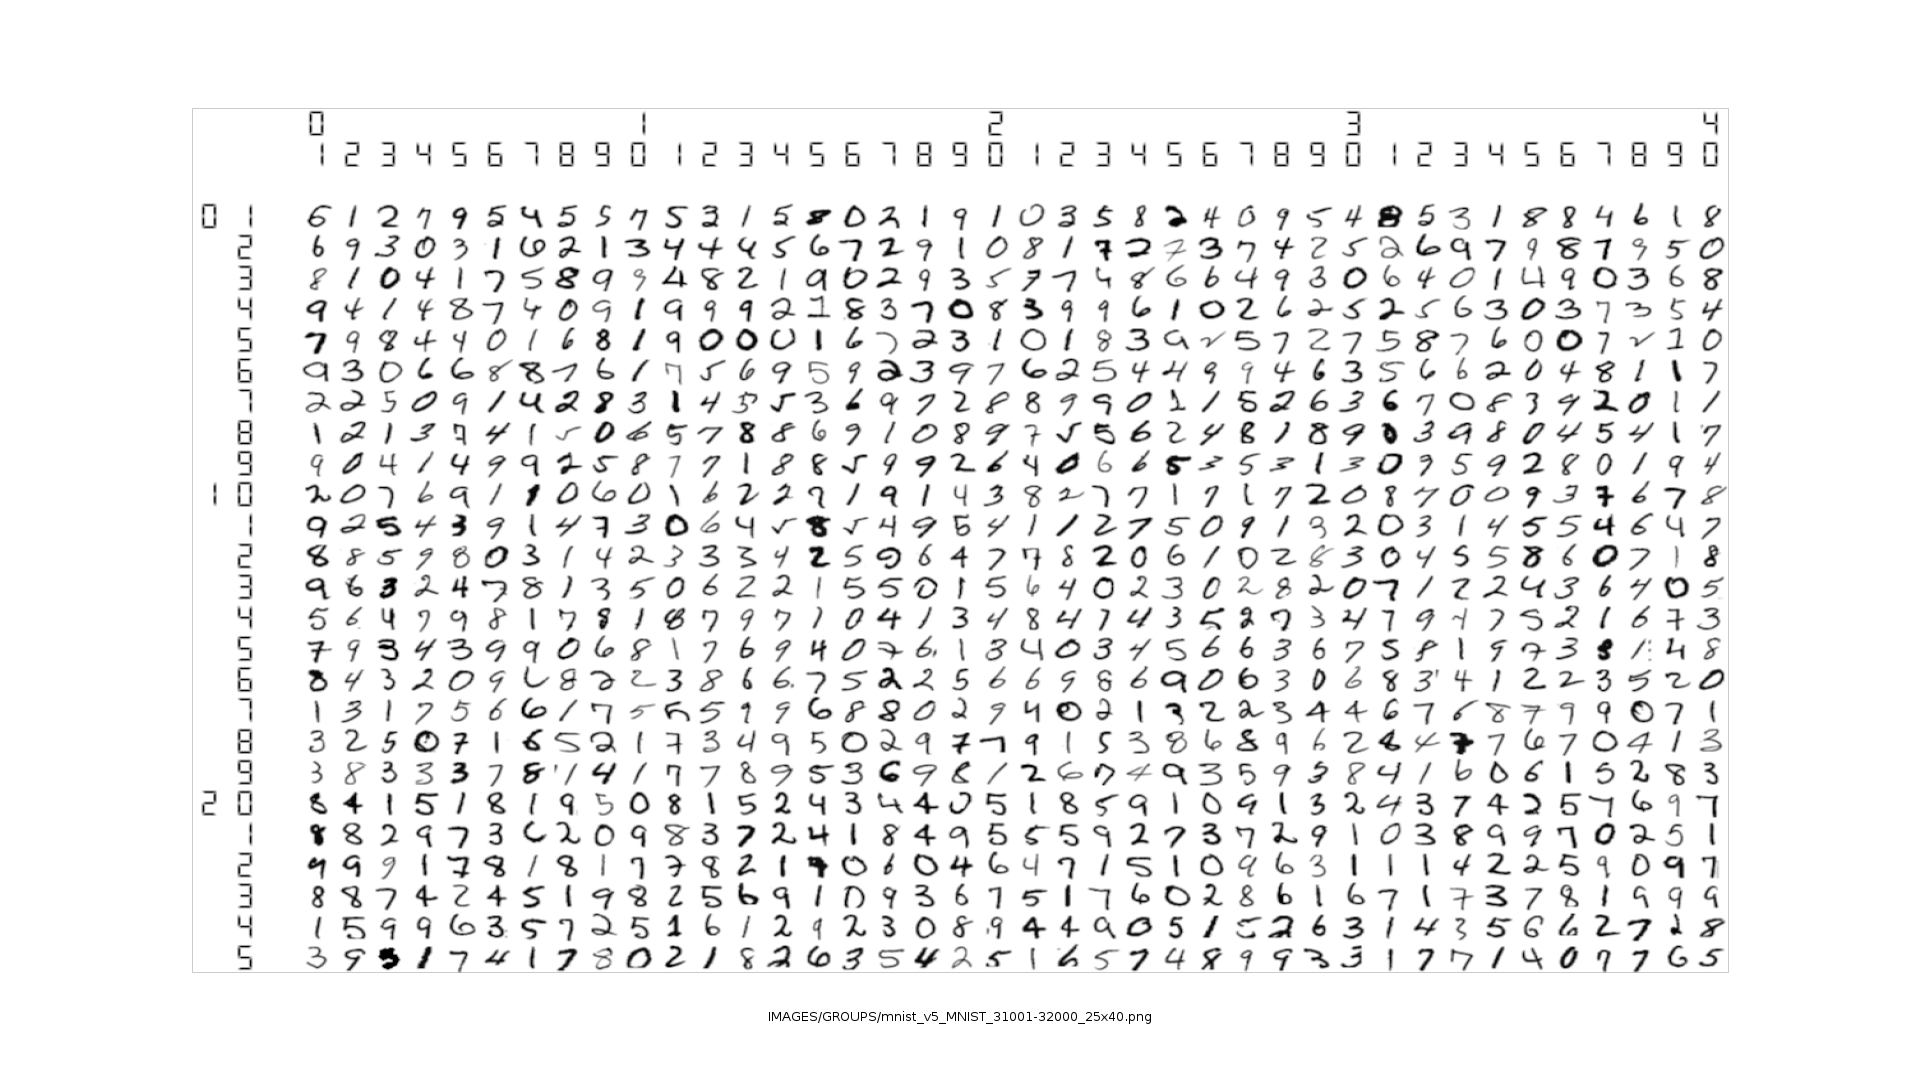 0 1 2 3 4
1 2 3 4 5 6 7 8 9 0 1 2 3 4 5 6 7 8 9 0 1 2 3 4 5 6 7 8 9 0 1 2 3 4 5 6 7 8 9 0
0 1 6 1 2 7 9 5 4 5 5 7 5 3 1 5 8 0 2 1 9 1 0 3 5 8 2 4 0 9 5 4 8 5 3 1 8 8 4 6 1 8
2 6 9 3 0 3 1 6 2 1 3 4 4 4 5 6 7 2 9 1 0 8 1 7 2 7 3 7 4 2 5 2 6 9 7 9 8 7 9 5 0
3 8 1 0 4 1 7 5 8 9 9 4 8 2 1 9 0 2 9 3 5 7 7 4 8 6 6 4 9 3 0 6 4 0 1 4 9 0 3 6 8
4 9 4 1 4 8 7 4 0 9 1 9 9 9 2 1 8 3 7 0 8 3 9 9 6 1 0 2 6 2 5 2 5 6 3 0 3 7 3 5 4
5 7 9 8 4 4 0 1 6 8 1 9 0 0 0 1 6 7 2 3 1 0 1 8 3 9 2 5 7 2 7 5 8 7 6 0 0 7 2 1 0
6 9 3 0 6 6 8 8 7 6 1 7 5 6 9 5 9 2 3 9 7 6 2 5 4 4 9 9 4 6 3 5 6 6 2 0 4 8 1 1 7
7 2 2 5 0 9 1 4 2 8 3 1 4 5 5 3 6 9 7 2 8 8 9 9 0 1 1 5 2 6 3 6 7 0 8 3 9 2 0 1 1
8 1 2 1 3 7 4 1 5 0 6 5 7 8 8 6 9 1 0 8 9 7 5 5 6 2 4 8 1 8 9 0 3 9 8 0 4 5 4 1 7
9 9 0 4 1 4 9 9 2 5 8 7 7 1 8 8 5 9 9 2 6 4 0 6 6 5 3 5 3 1 3 0 9 5 9 2 8 0 1 9 4
1 0 2 0 7 6 9 1 1 0 6 0 1 6 2 2 7 1 9 1 4 3 8 2 7 7 1 7 1 7 2 0 8 7 0 0 9 3 7 6 7 8
1 9 2 5 4 3 9 1 4 7 3 0 6 4 5 8 5 4 9 5 4 1 1 2 7 5 0 9 1 3 2 0 3 1 4 5 5 4 6 4 7
2 8 8 5 9 8 0 3 1 4 2 3 3 3 4 2 5 9 6 4 7 7 8 2 0 6 1 0 2 8 3 0 4 5 5 8 6 0 7 1 8
3 9 6 3 2 4 7 8 1 3 5 0 6 2 2 1 5 5 0 1 5 6 4 0 2 3 0 2 8 2 0 7 1 2 2 4 3 6 4 0 5
4 5 6 4 7 9 8 1 7 8 1 8 7 9 7 1 0 4 1 3 4 8 4 7 4 3 5 2 7 3 4 7 9 4 7 5 2 1 6 7 3
5 7 9 3 4 3 9 9 0 6 8 1 7 6 9 4 0 7 6 1 3 4 0 3 4 5 6 6 3 6 7 5 8 1 9 7 3 8 1 4 8
6 8 4 3 2 0 9 6 8 2 2 3 8 6 6 7 5 2 2 5 6 6 9 8 6 9 0 6 3 0 6 8 3 4 1 2 2 3 5 2 0
7 1 3 1 7 5 6 6 1 7 5 5 5 9 9 6 8 8 0 2 9 4 0 2 1 3 2 2 3 4 4 6 7 6 8 7 9 9 0 7 1
8 3 2 5 0 7 1 6 5 2 1 7 3 4 9 5 0 2 9 7 7 9 1 5 3 8 6 8 9 6 2 8 4 7 7 6 7 0 4 1 3
9 3 8 3 3 3 7 8 1 4 1 7 7 8 9 5 3 6 9 8 1 2 6 7 4 9 3 5 9 3 8 4 1 6 0 6 1 5 2 8 3
2 0 8 4 1 5 1 8 1 9 5 0 8 1 5 2 4 3 4 4 0 5 1 8 5 9 1 0 9 1 3 2 4 3 7 4 2 5 7 6 9 7
1 8 8 2 9 7 3 6 2 0 9 8 3 7 2 4 1 8 4 9 5 5 5 9 2 7 3 7 2 9 1 0 3 8 9 9 7 0 2 5 1
2 9 9 9 1 7 8 1 8 1 7 7 8 2 1 9 0 6 0 4 6 4 7 1 5 1 0 9 6 3 1 1 1 4 2 2 5 9 0 9 7
3 8 8 7 4 2 4 5 1 9 8 2 5 6 9 1 0 9 3 6 7 5 1 7 6 0 2 8 6 1 6 7 1 7 3 7 8 1 9 9 9
4 1 5 9 9 6 3 5 7 2 5 1 6 1 2 9 2 3 0 8 9 4 4 9 0 5 1 5 2 6 3 1 4 3 5 6 6 2 7 2 8
5 3 9 5 1 7 4 1 7 8 0 2 1 8 2 6 3 5 4 2 5 1 6 5 7 4 8 9 9 3 3 1 7 7 1 4 0 7 7 6 5
IMAGES/GROUPS/mnist_v5_MNIST_31001-32000_25x40.png